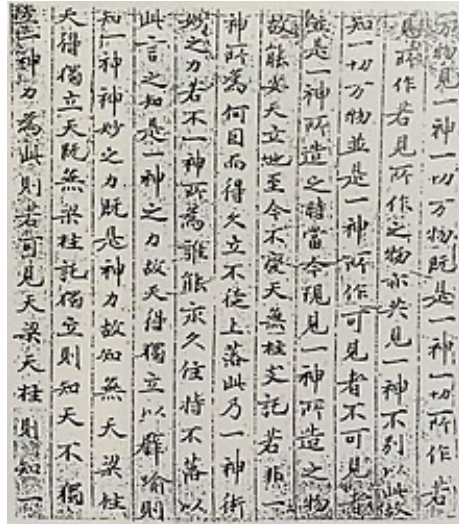 万物見一神一切万物既是一神一切所作若
見所作若見所作之物亦共見一神不别以此故
知一切万物並是一神所作可見者不可見者
是一神所造之時當今現見一神所造之物
故能安天立地至今不變天無柱支託若非一
神所為何因而得久立不從上落此乃一神術
妙之力若不一神所為誰能永久住持不落以
此言之知是一神之力故天得獨立以譬喻則
知一神神妙之力既是神力故知無天梁柱
天得獨立天既無梁柱託獨立則知天不獨
立一神力為此則若可見天梁天柱則知一